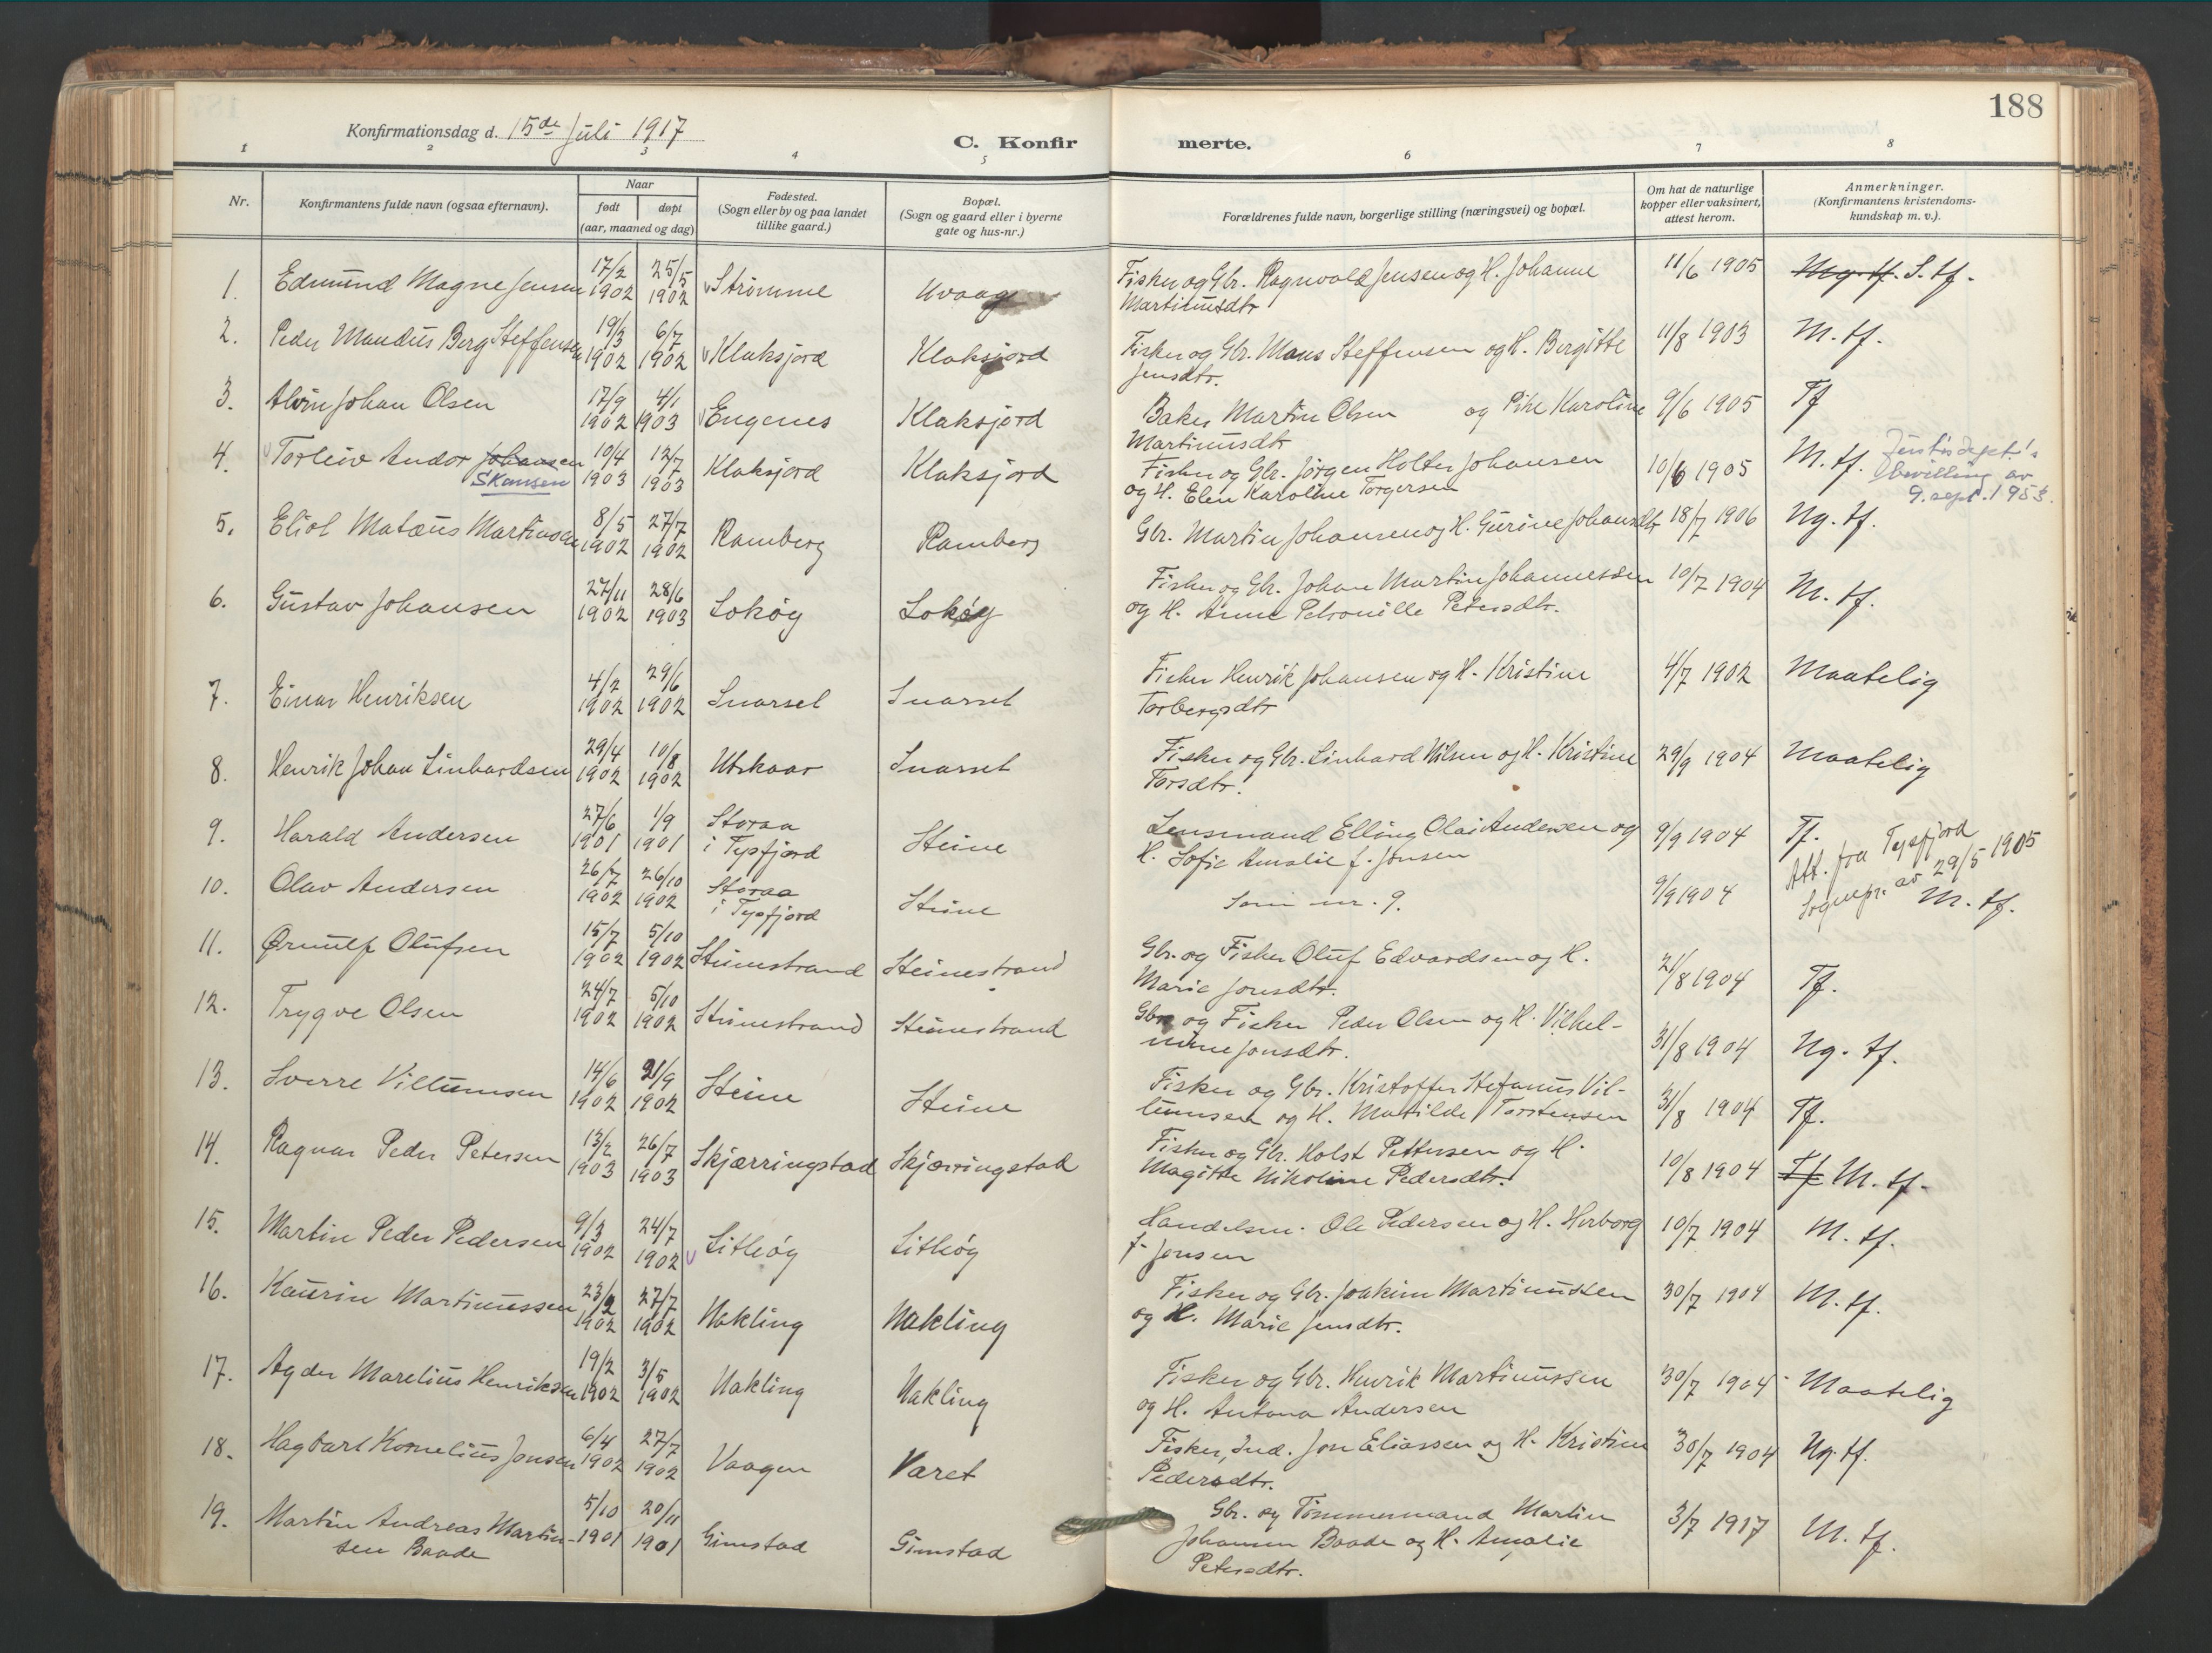 188
Konfirmationsdag d. 15de Juli 1917
C. Konfirmerte.
1 2 3 4 5 6 7 8
Nr.
Konfirmantens fulde navn (ogsaa efternavn).
Naar
født
døpt
(aar, maaned og dag)
Fødested.
(Sogn eller by og paa landet
tillike gaard.)
Bopæl.
(Sogn og gaard eller i byerne
gate og hus-nr.)
Forældrenes fulde navn, borgerlige stilling (næringsvei) og bopæl.
Om hat de naturlige
kopper eller vaksinert,
attest herom.
Anmerkninger.
(Konfirmantens kristendoms-
kundskap m. v.).
1. Edmund Magne Jensen 17/2 1902 25/5 1902 Strømme Uvaag Fisker og Gbr. Ragnvald Jensen og H. Johanne 11/6 1905 Mg. tf. S. tf.
Martinusdtr
2. Peder Mandus Berg Steffensen 19/3 1902 6/7 1902 Klaksjord Klaksjord Fisker og Gbr. Mons Steffensen og H. Bergitte 11/8 1903 M. tf.
Jensdtr.
3. Alvin Johan Olsen 17/9 1902 4/1 1903 Engenes Klaksjord Baker Martin Olsen og Pike Karoline 9/6 1905 Tf
Martinusdtr
4. Torleiv Andor Johansen 10/4 1903 12/7 1903 Klaksjord Klaksjord Fisker og Gbr. Jørgen Holter Johansen 10/6 1905 M. tf.
Skansen
og H. Elen Karoline Torgersen
bevilling av
9. sept. 1953.
5. Eliot Matæus Martinsen 8/5 1902 27/7 1902 Ramberg Ramberg Gbr. Martin Johansen og H. Gurine Johansdtr 18/7 1906 Ng. tf.
6. Gustav Johansen 27/11 1902 28/6 1903 Lokøy Lokøy Fisker og Gbr. Johan Martin Johannessen 10/7 1904 M. tf.
og H. Anne Petronille Petersdtr.
7. Einar Henriksen 4/2 1902 29/6 1902 Snarset Snarset Fisker Henrik Johansen og H. Kristine 4/7 1902 Maatelig
Torbergsdtr
8. Henrik Johan Linhardsen 29/4 1902 10/8 1902 Utskaar Snarset Fisker og Gbr. Linhard Nilsen og H. Kristine 29/9 1904 Maatelig
Torsdtr.
9. Harald Andersen 27/6 1901 1/9 1901 Storaa i Tysfjord Steine Lensmand Elling Olai Andersen og 9/9 1904 Tf.
H. Sofie Amalie f. Jensen
Att. fra Tysfjord
Sognepr. av 29/5 1905
10. Olav Andersen 26/7 1902 26/10 1902 Storaa i Tysfjord Steine Som nr. 9. 9/9 1904 M. tf.
11. Ørnulf Olufsen 15/7 1902 5/10 1902 Steinestrand Steinestrand Gbr. og Fisker Oluf Edvardsen og H. 21/8 1904 Tf.
Marie Jonsdtr.
12. Trygve Olsen 24/7 1902 5/10 1902 Steinestrand Steinestrand Gbr. og Fisker Peder Olsen og H. Vilhel- 31/8 1904 Ng. tf.
mine Jonsdtr.
13. Sverre Villumsen 14/6 1902 21/9 1902 Steine Steine Fisker og Gbr. Kristoffer Stefanus Vil- 31/8 1904 Tf.
lumsen og H. Matilde Torstensen
14. Ragnar Peder Petersen 13/2 1903 26/7 1903 Skjærringstad Skjærringstad Fisker og Gbr. Holst Pettersen og H. 10/8 1904 Tf M. tf.
Magitte Nikoline Pedersdtr.
15. Martin Peder Pedersen 9/3 1902 24/7 1902 Litløy Litløy Handelsm. Ole Pedersen og H. Herborg 10/7 1904 M. tf.
f. Jensen
16. Kaurin Martinussen 23/2 1902 27/7 1902 Nakling Nakling Fisker og Gbr. Joakim Martinussen 30/7 1904 M. tf.
og H. Marie Jensdtr.
17. Agder Marelius Henriksen 19/2 1902 3/5 1902 Nakling Nakling Fisker og Gbr. Henrik Martinussen 30/7 1904 Maatelig
og H. Antona Andersen
18. Hagbart Kornelius Jonsen 6/4 1902 27/7 1902 Vaagen Varet Fisker, Ind. Jon Eliassen og H. Kristine 30/7 1904 Ng. tf.
Pedersdtr.
19. Martin Andreas Martin- 5/10 1901 20/11 1901 Gimstad Gimstad Gbr. og Tømmermand Martin 3/7 1917 M. tf.
sen Baade
Johansen Baade og H. Amalie
Petersdtr.